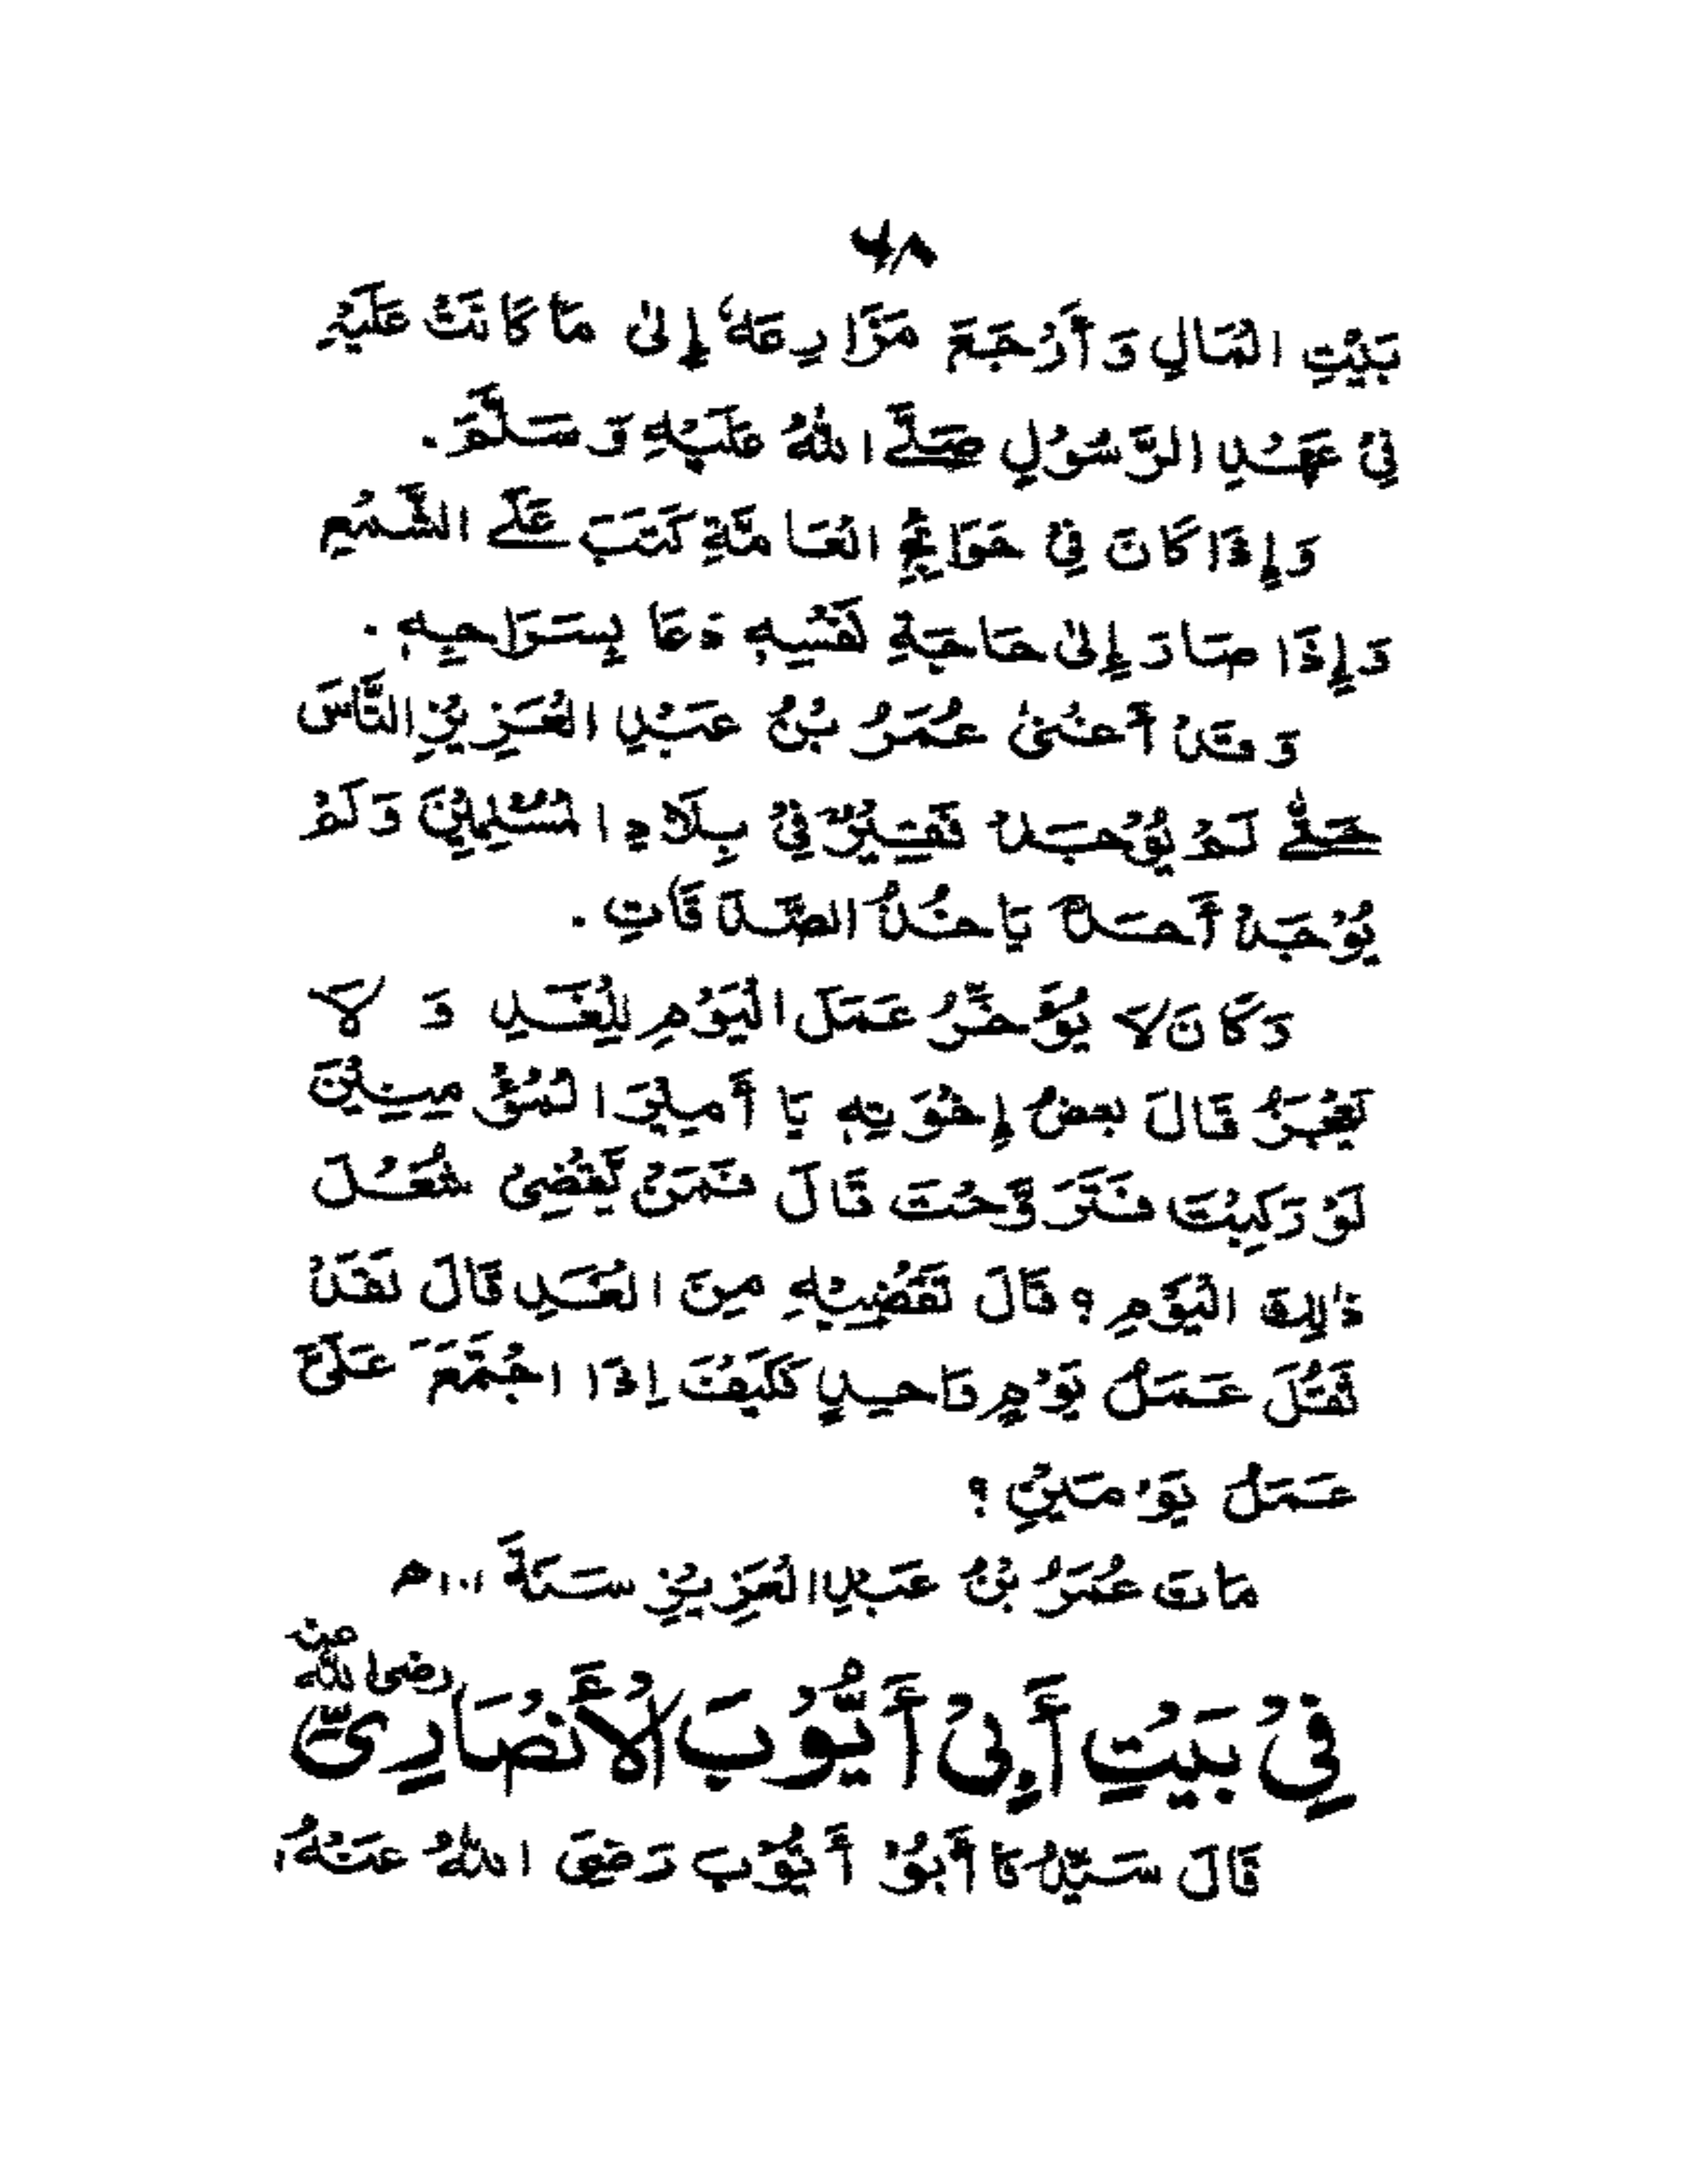 ۶۸
بَيْتِ الْمَالِ وَأَرْجَعَ مَزَارِعَهٗ إِلىٰ مَا كَانَتْ عَلَيْهِ
فِيْ عَهْدِ الرَّسُوْلِ صَلَّے اللّٰهُ عَلَيْهِ وَسَلَّمَ.
وَإِذَا كَانَ فِيْ حَوَائِجِ الْعَامَّةِ كَتَبَ عَلَے الشَّمْعِ
وَإِذَا صَارَ إِلىٰ حَاجَةِ نَفْسِهٖ دَعَا بِسَرَاجِهٖ.
وَقَدْ أَغْنىٰ عُمَرُ بْنُ عَبْدِ الْعَزِيْزِ النَّاسَ
حَتّٰے لَمْ يُوْجَدْ فَقِيْرٌ فِيْ بِلَادِ الْمُسْلِمِيْنَ وَلَمْ
يُوْجَدْ أَحَدٌ يَاخُذُ الصَّدَقَاتِ.
وَكَانَ لَا يُؤَخِّرُ عَمَلَ الْيَوْمِ لِلْغَدِ وَ لَا
يَفْتُرُ قَالَ بعضُ إِخْوَتِهٖ يَا أَمِيْرَ الْمُؤْمِنِيْنَ
لَوْ رَكِبْتَ فَتَرَوَّحْتَ قَالَ فَمَنْ يَّقْضِيْ شُغْلَ
ذٰلِكَ الْيَوْمِ؟ قَالَ تَقْضِيْهِ مِنَ الْغَدِ قَالَ لَقَدْ
ثَقُلَ عَمَلُ يَوْمٍ وَاحِدٍ فَكَيْفَ إِذَا اجْتَمَعَ عَلَيَّ
عَمَلُ يَوْمَيْنِ؟
مَاتَ عُمَرُ بْنُ عَبْدِ الْعَزِيْزِ سَنَةَ ۱۰۱ه
فِيْ بَيْتِ أَبِيْ أَيُّوْبَ الْأَنْصَارِيِّ رضى الله عنه
قَالَ سَيِّدُنَا أَبُوْ أَيُّوْبَ رَضِيَ اللّٰهُ عَنْهُ: